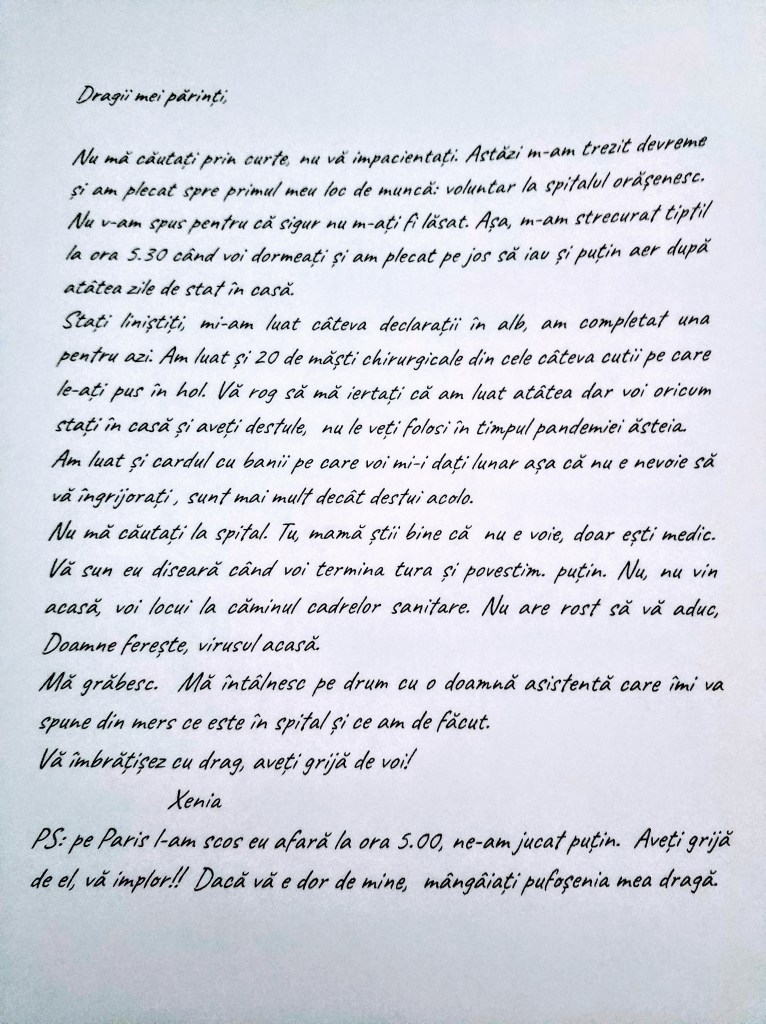 Dragii mei părinți,
Nu mă căutați prin curte, nu vă impacientați. Astăzi m-am trezit devreme
și am plecat spre primul meu loc de muncă: voluntar la spitalul orășenesc.
Nu v-am spus pentru că sigur nu m-ați fi lăsat. Așa, m-am strecurat tiptil
la ora 5.30 când voi dormeați și am plecat pe jos să iau și puțin aer după
atâtea zile de stat în casă.
Stați liniștiți, mi-am luat câteva declarații în alb, am completat una
pentru azi. Am luat și 20 de măști chirurgicale din cele câteva cutii pe care
le-ați pus în hol. Vă rog să mă iertați că am luat atâtea dar voi oricum
stați în casă și aveți destule, nu le veți folosi în timpul pandemiei ăsteia.
Am luat și cardul cu banii pe care voi mi-i dați lunar așa că nu e nevoie să
vă îngrijorați , sunt mai mult decât destui acolo.
Nu mă căutați la spital. Tu, mamă știi bine că nu e voie, doar ești medic.
Vă sun eu diseară când voi termina tura și povestim. puțin. Nu, nu vin
acasă, voi locui la căminul cadrelor sanitare. Nu are rost să vă aduc,
Doamne ferește, virusul acasă.
Mă grăbesc. Mă întâlnesc pe drum cu o doamnă asistentă care îmi va
spune din mers ce este în spital și ce am de făcut.
Vă îmbrățișez cu drag, aveți grijă de voi!
Xenia
PS: pe Paris l-am scos eu afară la ora 5.00, ne-am jucat puțin. Aveți grijă
de el, vă implor!! Dacă vă e dor de mine, mângâiați pufoșenia mea dragă.